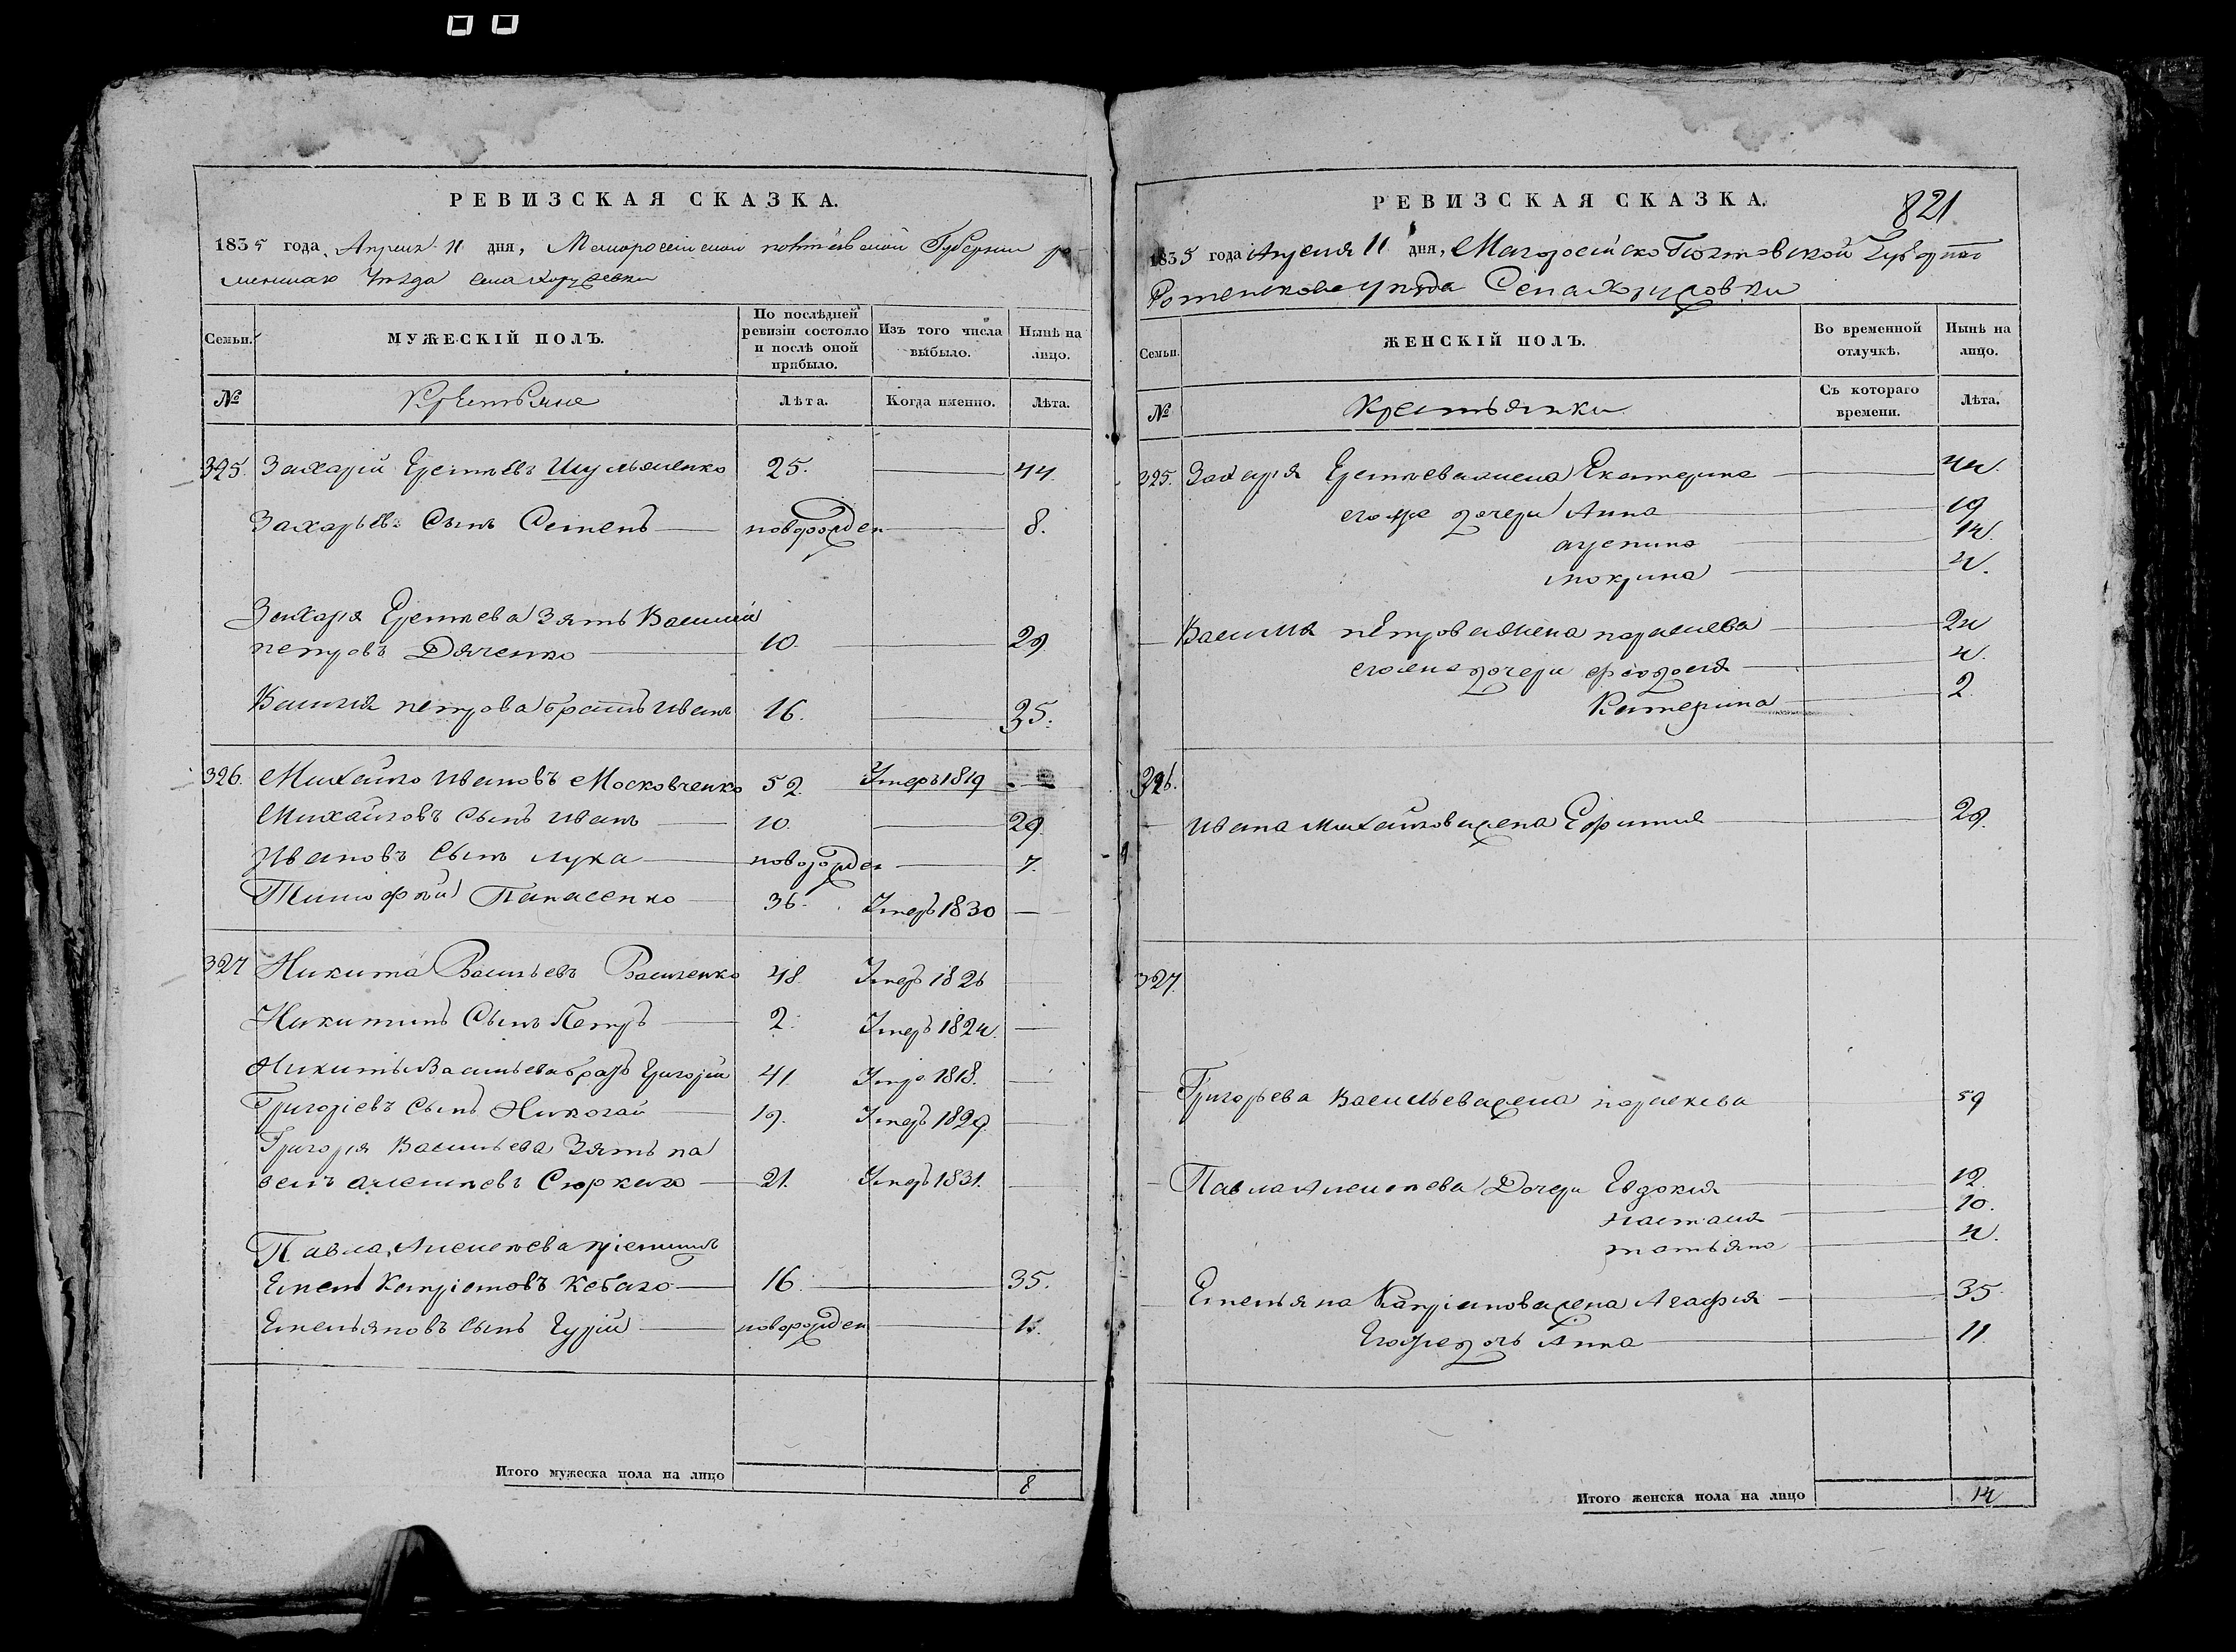 РЕВИЗСКАЯ СКАЗКА.
1835 года Апреля 11 дня, Малоросіиской полтавской Губерніи ро-
менскаго Уѣзда села
Семьи. МУЖЕСКІЙ ПОЛЪ. По послѣдней ревизіи состояло и послѣ оной прибыло. Изъ того числа выбыло. Нынѣ на лицо.
№ Крестьяне Лѣта. Когда именно. Лѣта.
325. Захарій Шульженко 25. 44.
Захарьевъ Сынъ Семенъ новорожден 8.
Захарія зять Василій
петровъ Дяченко 10. 29
Василія петрова братъ иванъ 16. 35.
326. Михайло ивановъ Московченко 52. Умеръ 1819
Михайловъ сынъ иванъ 10. 29.
Ивановъ сынъ лука новорожден 7.
Тимофѣй Панасенко 36. Умеръ 1830
327 Никита Васильевъ Василенко 48. Умеръ 1826
Никитинъ Сынъ Петръ 2. Умеръ 1824.
Никиты Васильева братъ Григорій 41. Умре 1818.
Григоріевъ сынъ Николай 19. Умеръ 1829.
Григорія Васильева Зять па
велъ 21. Умеръ 1831.
Павла Алексѣева
16. 35.
Емельяновъ сынъ Гурій новорожден
Итого мужеска пола на лицо 8
821
РЕВИЗСКАЯ СКАЗКА.
1835 года Апреля 11 дня, Малоросійско Полтавской
Села
Семьи. ЖЕНСКІЙ ПОЛЪ. Во временной отлучкѣ. Нынѣ на лицо.
№ Крестьянки Съ котораго времени. Лѣта.
325. Захарія жена Екатерина 44.
его же дочери Анна 19
14.
мокрина 4.
Василія петрова жена 24
его же дочери феодосія 4.
Катерина 2.
326.
ивана михайлова жена Ефимия 29.
327.
Григорьева Васильева жена 59
Павла Алексѣева Дочери Евдокия 12.
настасия 10.
татьяна 4.
Емельяна жена Агафия 35
Его же дочь Анна 11.
Итого женска пола на лицо 14